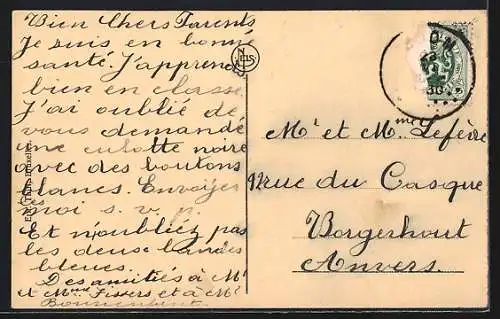 Bien Chers Parents
Je suis en bonne
santé. J'apprends
bien en classe
J'ai oublié de
vous demandé
une culotte noire
avec des boutons
blancs. Envoyez
les
moi s. v. p.
Et n'oubliez pas
les deuse bandes
bleues.
Des amitiés à Mr
et Mme Fissers et à Mr
NELS
30
Mr et Mme Lefèvre
rue du Casque
Borgerhout
Anvers.